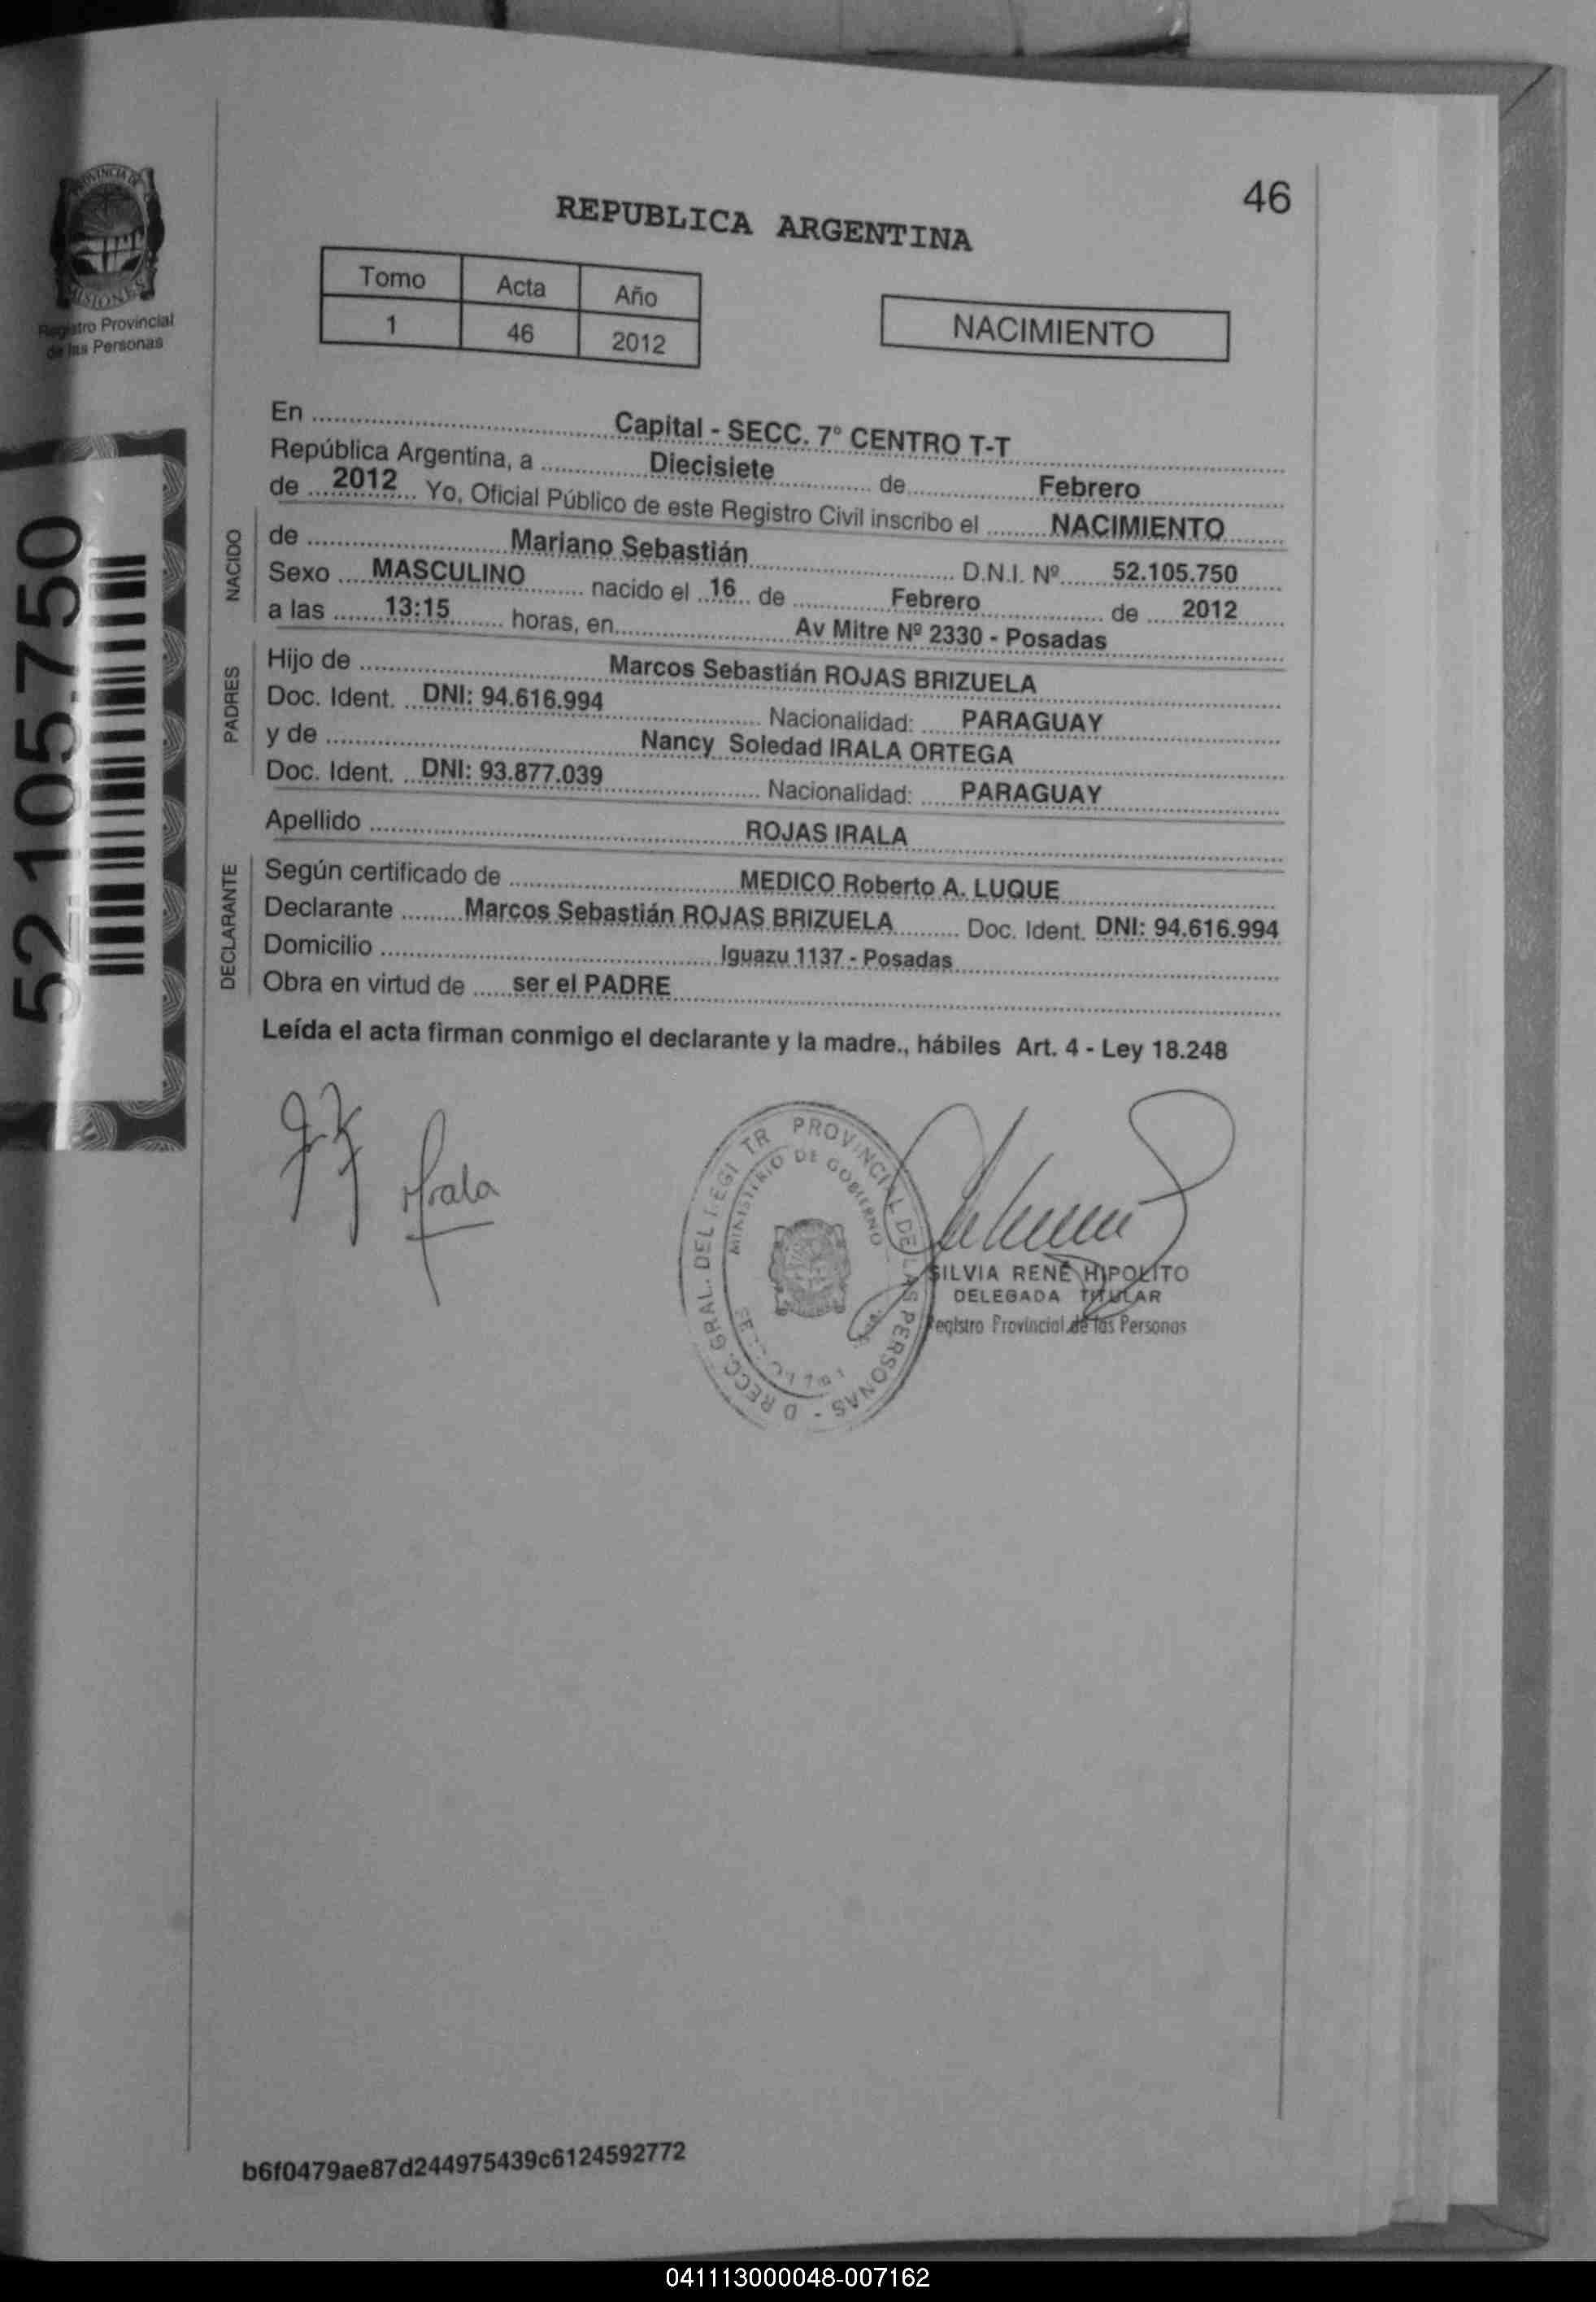 46
PROVINCIA DE
MISIONES
Registro Provincial
de las Personas
REPUBLICA ARGENTINA
Tomo Acta Año
1 46 2012
NACIMIENTO
52.105.750
En Capital - SECC. 7° CENTRO T-T
República Argentina, a Diecisiete de Febrero
de 2012 Yo, Oficial Público de este Registro Civil inscribo el NACIMIENTO
NACIDO
de Mariano Sebastián D.N.I. Nº 52.105.750
Sexo MASCULINO nacido el 16 de Febrero de 2012
a las 13:15 horas, en Av Mitre Nº 2330 - Posadas
PADRES
Hijo de Marcos Sebastián ROJAS BRIZUELA
Doc. Ident. DNI: 94.616.994 Nacionalidad: PARAGUAY
y de Nancy Soledad IRALA ORTEGA
Doc. Ident. DNI: 93.877.039 Nacionalidad: PARAGUAY
Apellido ROJAS IRALA
DECLARANTE
Según certificado de MEDICO Roberto A. LUQUE
Declarante Marcos Sebastián ROJAS BRIZUELA Doc. Ident. DNI: 94.616.994
Domicilio Iguazu 1137 - Posadas
Obra en virtud de ser el PADRE
Leída el acta firman conmigo el declarante y la madre., hábiles Art. 4 - Ley 18.248
Irala
PROVINCIAL DE LAS PERSONAS -
MINISTERIO DE GOBIERNO
SILVIA RENÉ HIPOLITO
DELEGADA TITULAR
Registro Provincial de las Personas
b6f0479ae87d244975439c6124592772
041113000048-007162